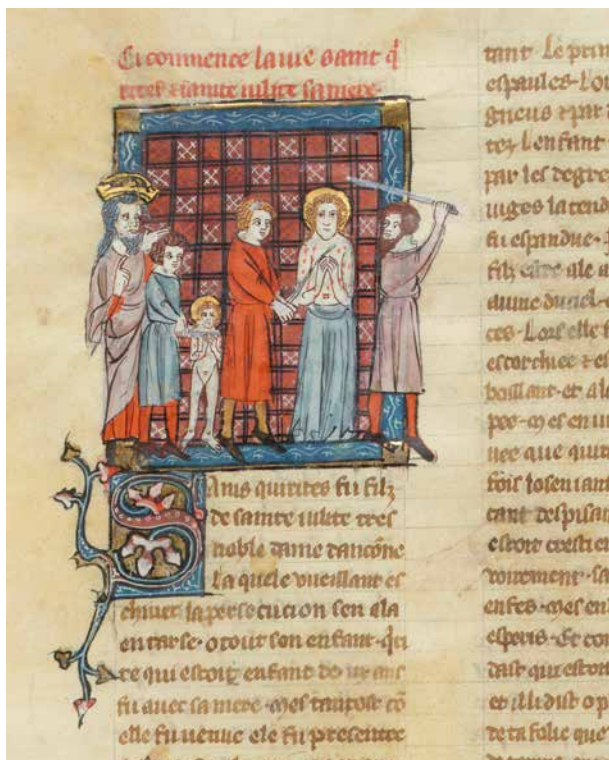 Ci commence la uie saint q̃
rites & sainte iulite sa mere·
Sanis quirites fu filz
de sainte iulite tres
noble dame dancõne
La quele vueillant es
chiuer la persecucion sen ala
en tarse· o tout son enfant· qri
te qui estoit enfant de ans
fu auec sa mere· mes tantost cõ
elle fu uenue ele fu presentee
tant Le prin
espaules· Lo
gneus & par
tez Lenfant
par les degre
iuges la tend
fu espandue·
filz estre ale a
aume du ciel·
ces· Lors elle
escorchiee & e
boillant· et a l
poe· mes en
uee que quit
fois
tant despisan
estoit crestien
voirement· sa
enfes· mes en
esperis· Et con
dast qui estoit
et illi dist o p
de ta folie que